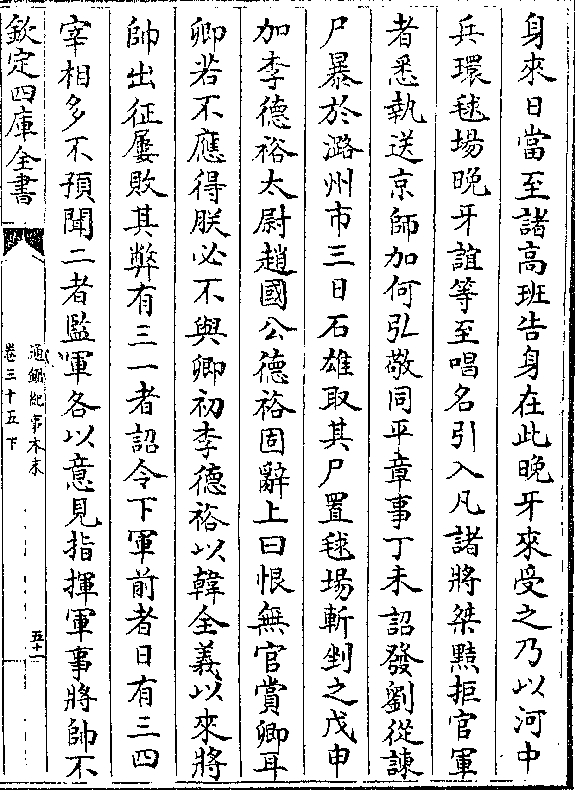 身來日當至諸高班告身在此晚牙來受之乃以河中
兵環毬場晚牙誼等至唱名引入凡諸將桀黠拒官軍
者悉執送京師加何弘敬同平章事丁未詔發劉從諫
尸暴於潞州市三日石雄取其尸置毬場斬剉之戊申
加李德裕太尉趙國公德裕固辭上曰恨無官賞卿耳
卿若不應得朕必不與卿初李德裕以韓全義以來將
帥出征屢敗其弊有三一者詔令下軍前者日有三四
宰相多不預聞二者監軍各以意見指揮軍事將帥不
欽定四庫全書
通鑑紀事本末
卷三十五下
五十一